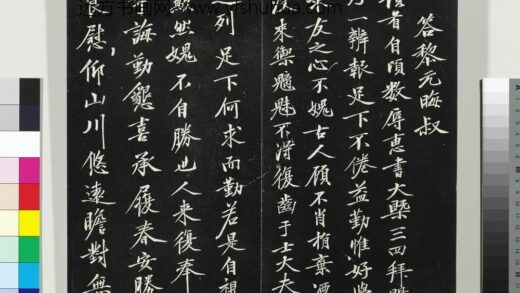 远方书画网 www.yfshuhua.com
答黎元晦叔
者自頃數辱惠書大槩三四拜
一辨報足下不倦益勤惟好
友之心不媿古人顧不肖捐棄
來禦魑魅不得復齒于士大夫
列足下何求而勤若是自視
然媿不自勝也人來復奉
誨勤懇喜承履春安勝
慰仰山川悠遠瞻對無